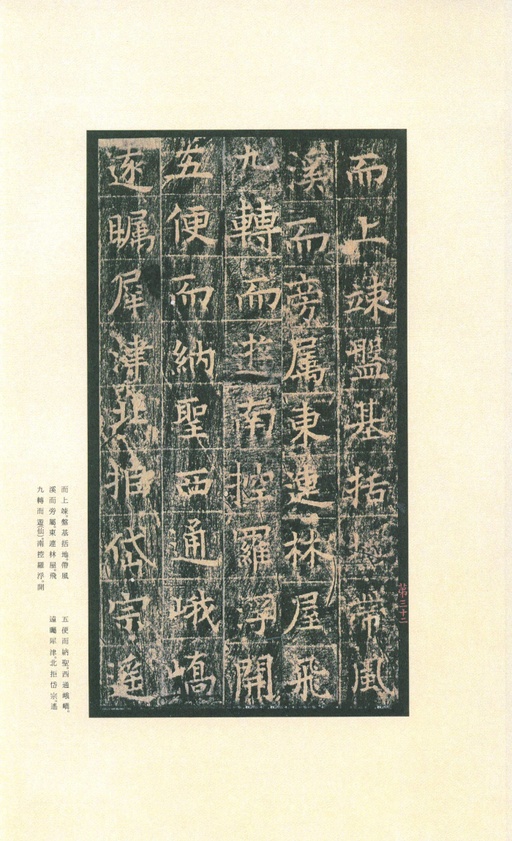 而上竦盤基括地帶風
溪而旁属東連林屋飛
九轉而遊南控羅浮開
五便而納聖西通峨嵋
遠矚犀津北拒岱宗遥
第三十二
而上竦,盤基括地,帶風
溪而旁屬,東連林屋,飛
九轉而遊仙,南控羅浮,開
五便而納聖,西通峨嵋,
遠矚犀津,北拒岱宗,遙